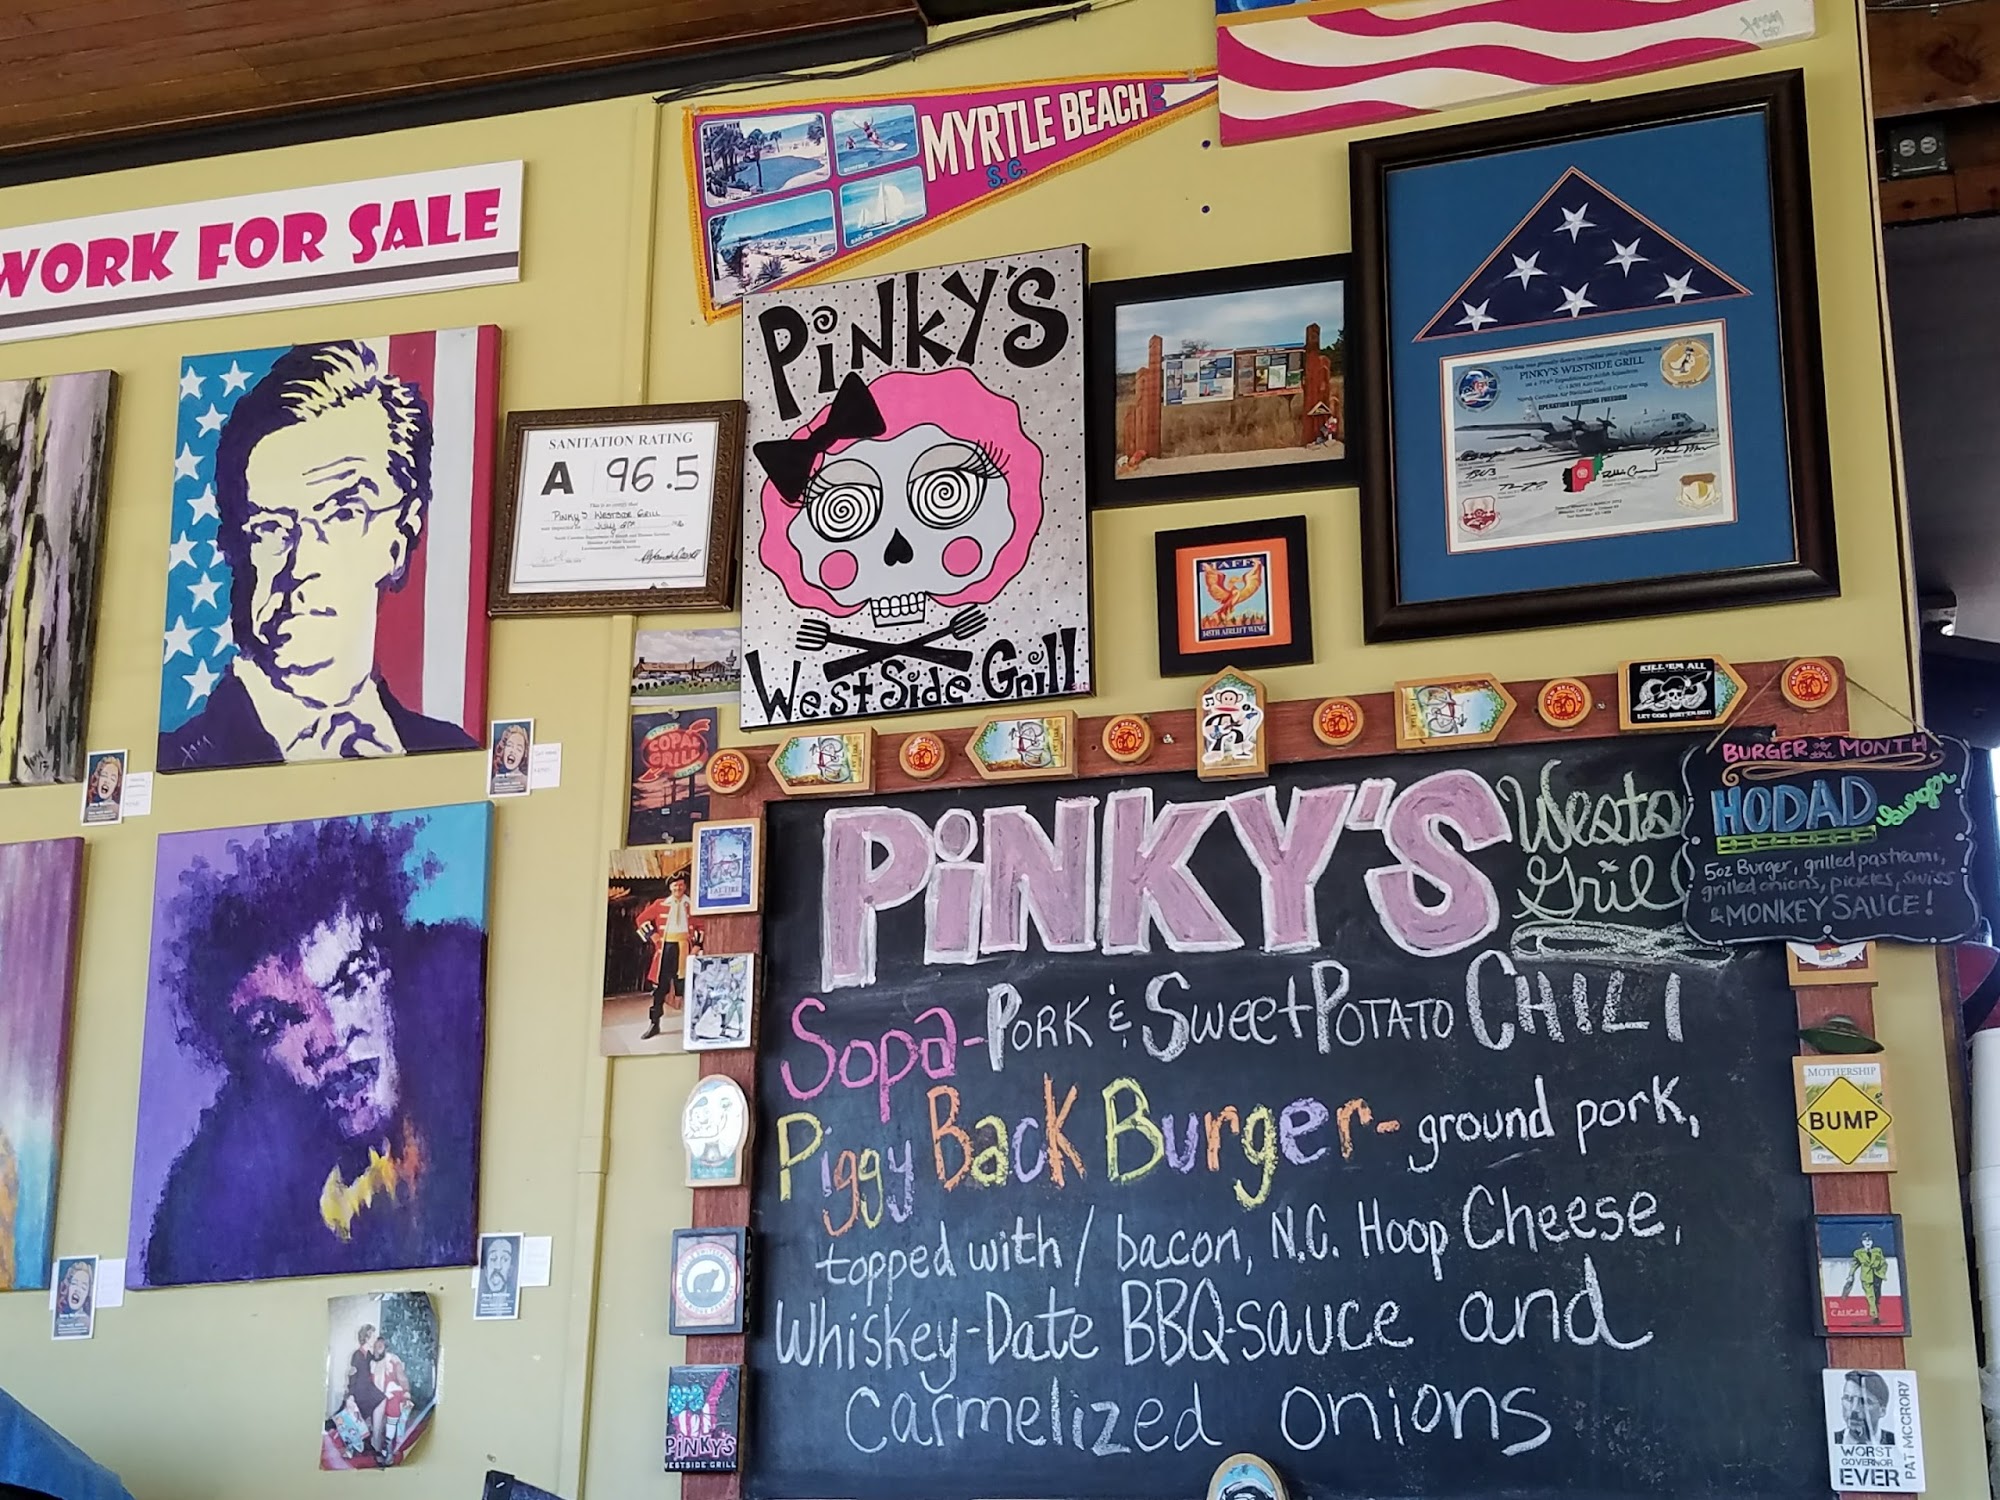 WORK FOR SALE
MYRTLE BEACH
S.C.
PINKY'S
WestSide Grill
SANITATION RATING
A 96.5
This is to certify that
PINKY'S WESTSIDE GRILL
PINKY'S WESTSIDE GRILL
OPERATION ENDURING FREEDOM
MAFFS
145TH AIRLIFT WING
COPAL GRILL
KILL 'EM ALL
LET GOD SORT 'EM OUT
NEW BELGIUM
BURGER of the MONTH
HODAD
burger
5oz Burger, grilled pastrami,
grilled onions, pickles, swiss
& MONKEY SAUCE!
PiNKY'S
Grill
Sopa-PORK & SweetPOTATO CHILI
Piggy Back Burger- ground pork,
topped with / bacon, N.C. Hoop Cheese,
Whiskey-Date BBQ-sauce and
carmelized onions
FAT TIRE
MOTHERSHIP
BUMP
PiNKY'S
WESTSIDE GRILL
WORST
GOVERNOR
EVER
PAT MCCRORY